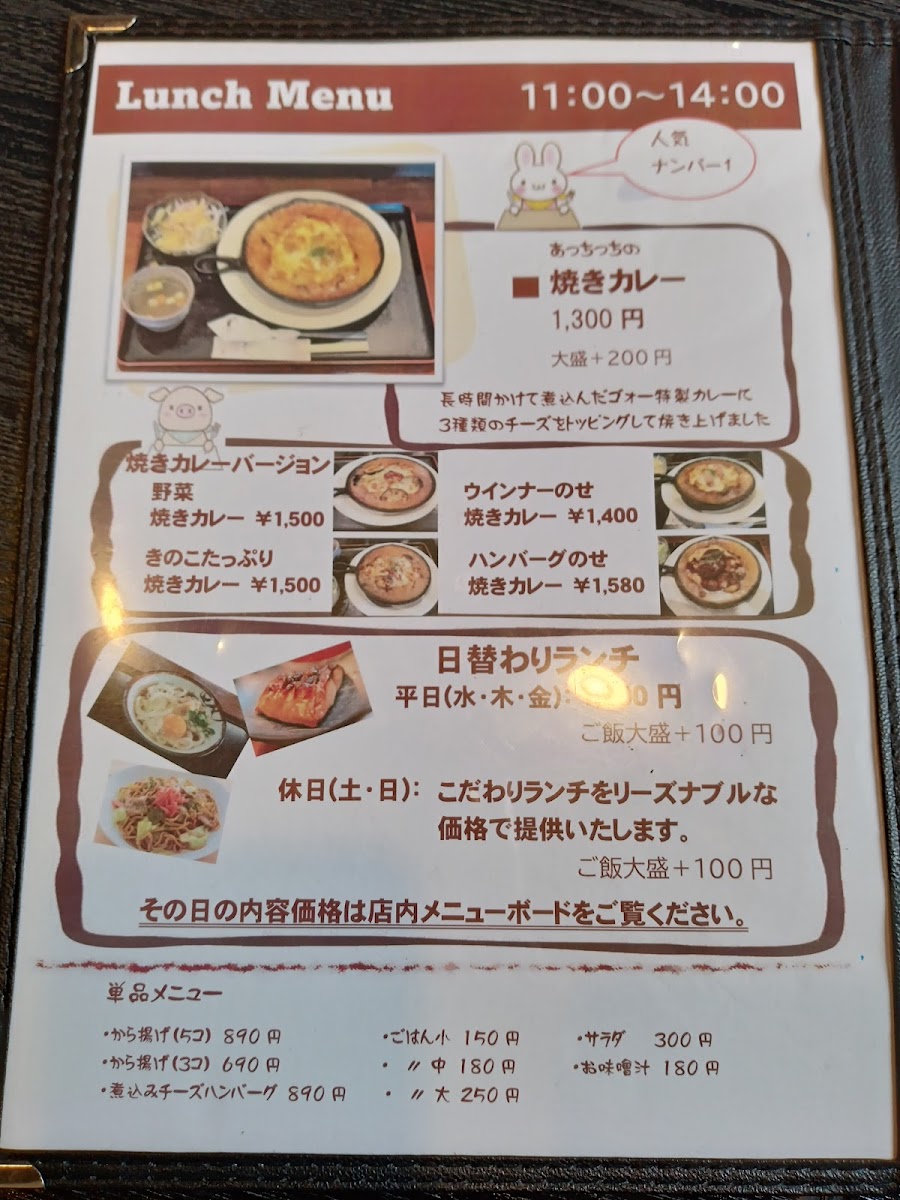 Lunch Menu 11:00～14:00
人気
ナンバー1
あっちっちの
■ 焼きカレー
1,300 円
大盛＋200 円
長時間かけて煮込んだゴォー特製カレーに
3種類のチーズをトッピングして焼き上げました
焼きカレーバージョン
野菜
焼きカレー ￥1,500
ウインナーのせ
焼きカレー ￥1,400
きのこたっぷり
焼きカレー ￥1,500
ハンバーグのせ
焼きカレー ￥1,580
日替わりランチ
平日(水・木・金): 円
ご飯大盛＋100 円
休日(土・日): こだわりランチをリーズナブルな
価格で提供いたします。
ご飯大盛＋100 円
その日の内容価格は店内メニューボードをご覧ください。
単品メニュー
・から揚げ(5コ) 890 円
・から揚げ(3コ) 690 円
・煮込みチーズハンバーグ 890 円
・ごはん小 150 円
・ 〃 中 180 円
・ 〃 大 250 円
・サラダ 300 円
・お味噌汁 180 円